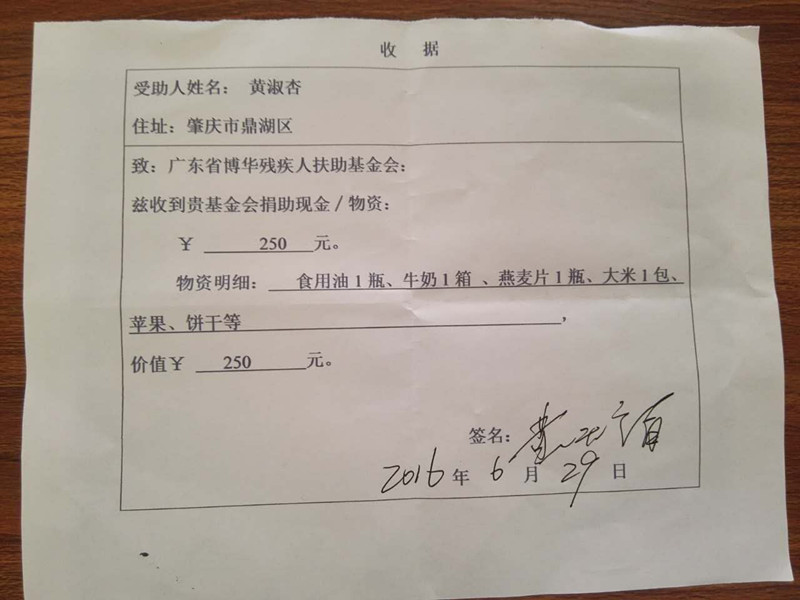 收 据
受助人姓名： 黄淑杏
住址：肇庆市鼎湖区
致：广东省博华残疾人扶助基金会：
兹收到贵基金会捐助现金／物资：
￥ 250 元。
物资明细： 食用油1瓶、牛奶1箱 、燕麦片1瓶、大米1包、
苹果、饼干等 ，
价值￥ 250 元。
签名：
2016 年 6 月 29 日